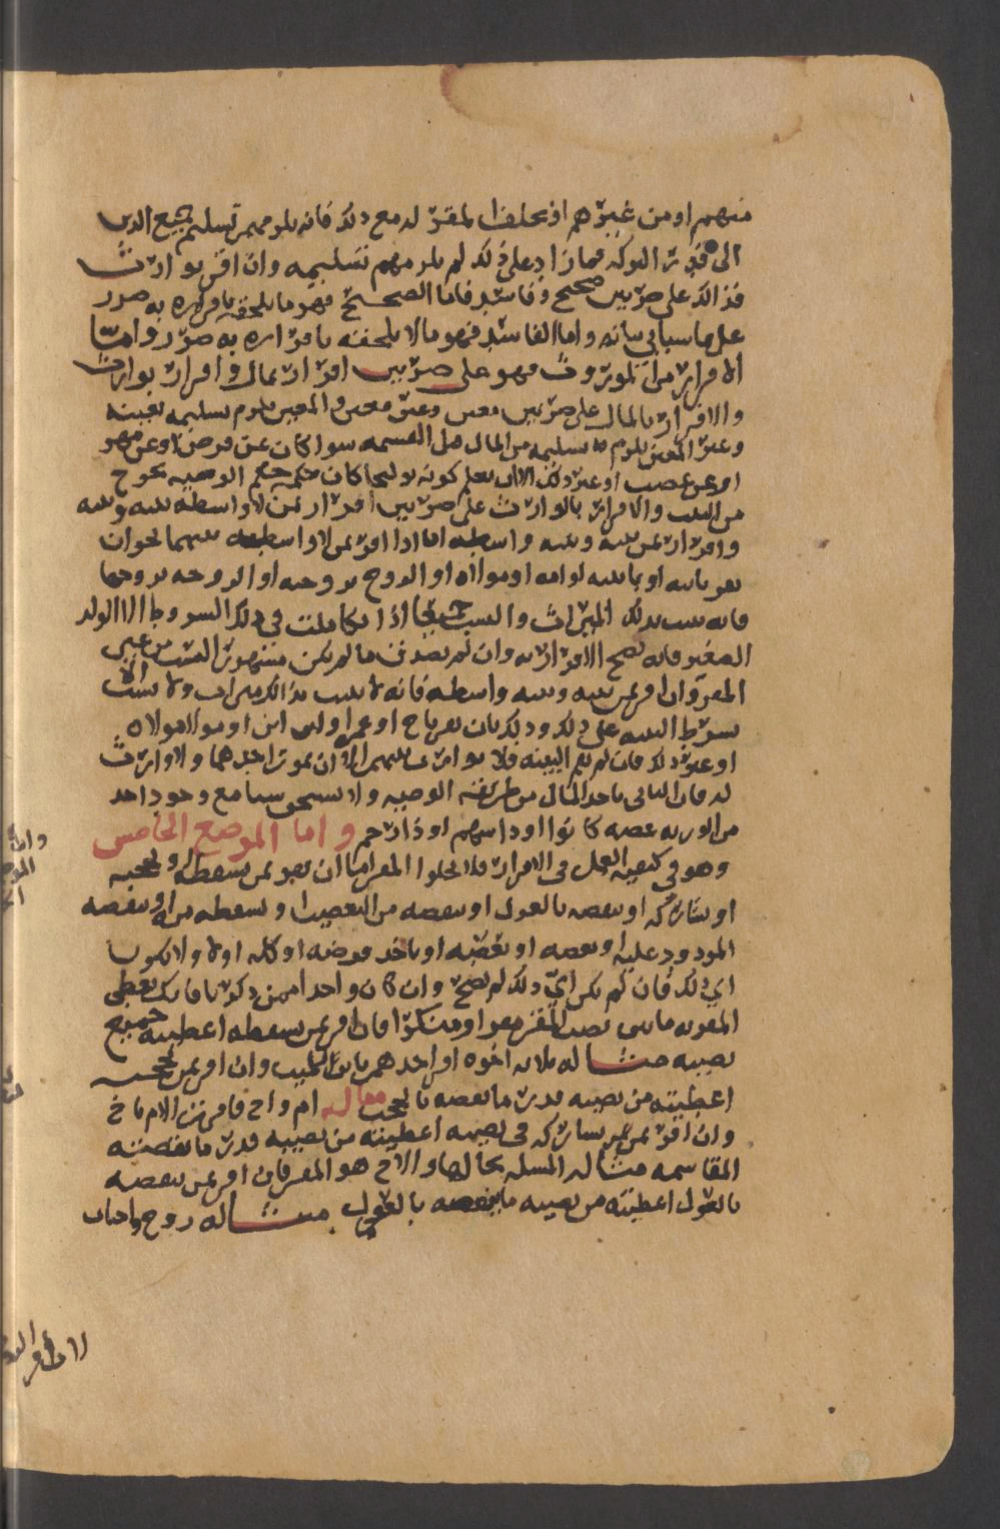 منهم او من غيرهم اذ يحلف المقر له مع ذلك فانه يلزمهم تسليم جميع الدين
الى قدر التركه فما زاد على ذلك لم يلزمهم تسليمه وان اقر بوارث
فذالك على ضربين صحيح وفاسد فاما الصحيح فهو ما يلحقه باقراره به ضرر
على ما سياتي بيانه واما الفاسد فهو مالا يلحقه باقراره به ضرر واما
الاقرار من الموروث فهو على ضربين اقرار بمال واقرار بوارث
والاقرار بالمال على ضربين معين وغير معين والمعين يلزم تسليمه بعينه
وغير المعين يلزم تسليمه من المال قبل القسمه سوا كان عن قرض او عن مهر
او عن غصب او غير ذلك الا ان يعلم كونه توليجا كان حكمه حكم الوصيه يخرج
من الثلث والاقرار بالوارث على ضربين اقرار بمن لا واسطه بينه وبينه
واقرار بمن بينه وبينه واسطه اما اذا اقر بمن لا واسطه بينهما نحو ان
يقر بابنه او بابيه او امه او مولاه او الزوج بزوجه او الزوجه بزوجها
فانه يثبت بذلك الميراث والنسب جميعا اذا تكاملت في ذلك الشروط الا الولد
الصغير فانه يصح الاقرار به وان لم يصدق ما لم يكن مشهور النسب من غير
المقر وان اقر بمن بينه وبينه واسطه فانه لا يثبت بذالك ميراث ولا نسب الا
بشرط البينه على ذلك وذلك بان يقر باخ او عم او ابن ابن او مولا مولاه
او غير ذلك فان لم يقم البينه فلا توارث بينهم الا ان يموت احدهما ولا وارث
له فان الباقي ياخذ المال من طريقه الوصيه ولا يستحق شيا مع وجود احد
من الورثه عصبه كانوا او ذا سهم او ذا رحم واما الموضع الخامس
وهو في كيفيه العمل في الاقرار فلا يخلوا المقر اما ان يقر بمن يسقطه او يحجبه
او يشاركه او ينقصه بالعول او ينقصه من التعصيب او يسقطه من الرد او ينقصه
المردود عليه او يعصبه او ياخذ فرضه او كله اولا ولا يكون
اي ذلك فان لم يكن اي ذلك لم يصح وان كان واحدا من ذكرنا فانك تعطي
المقر به ما بين نصيب المقر مقرا ومنكرا فان اقر بمن يسقطه اعطيته جميع
نصيبه مثاله ثلاثه اخوه اقر احدهم بابن للميت وان اقر بمن يحجبه
اعطيته من نصيبه قدر ما نقصه بالحجب مثاله ام واخ فاقرت الام باخ
وان اقر بمن يشاركه في نصيبه اعطيته من نصيبه قدر ما نقصته
المقاسمه مثاله المسله بحالها والاخ هو المقر فان اقر بمن ينقصه
بالعول اعطيته من نصيبه ما ينقصه بالعول مثاله زوج واختان